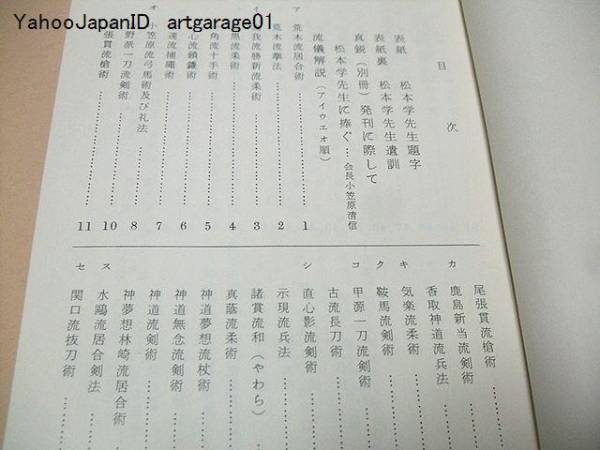 YahooJapanID artgarage01
目次
表紙 松本学先生題字
表紙裏 松本学先生遺訓
真鋭(別冊)発刊に際して
松本学先生に捧ぐ…会長小笠原清信
流儀解説(アイウエオ順)
ア 荒木流居合術 1
荒木流拳法 2
イ 為我流勝新流柔術 3
黒流柔術 4
角流十手術 5
心流鎖鎌術 6
達流捕縄術 7
オ 小笠原流弓馬術及び礼法 8
野派一刀流剣術 9
張貫流槍術 10
11
尾張貫流槍術
カ 鹿島新当流剣術
香取神道流兵法
キ 気楽流柔術
ク 鞍馬流剣術
コ 甲源一刀流剣術
古流長刀術
シ 直心影流剣術
示現流兵法
諸賞流和(やわら)
真蔭流柔術
神道夢想流杖術
神道無念流剣術
神道流剣術
神夢想林崎流居合術
ス 水鴎流居合剣法
セ 関口流抜刀術